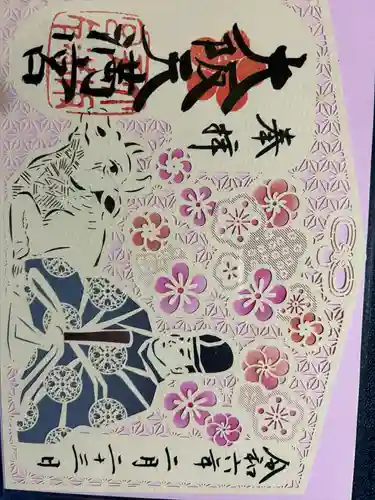 奉拝
大阪天満宮
令和六年二月二十三日